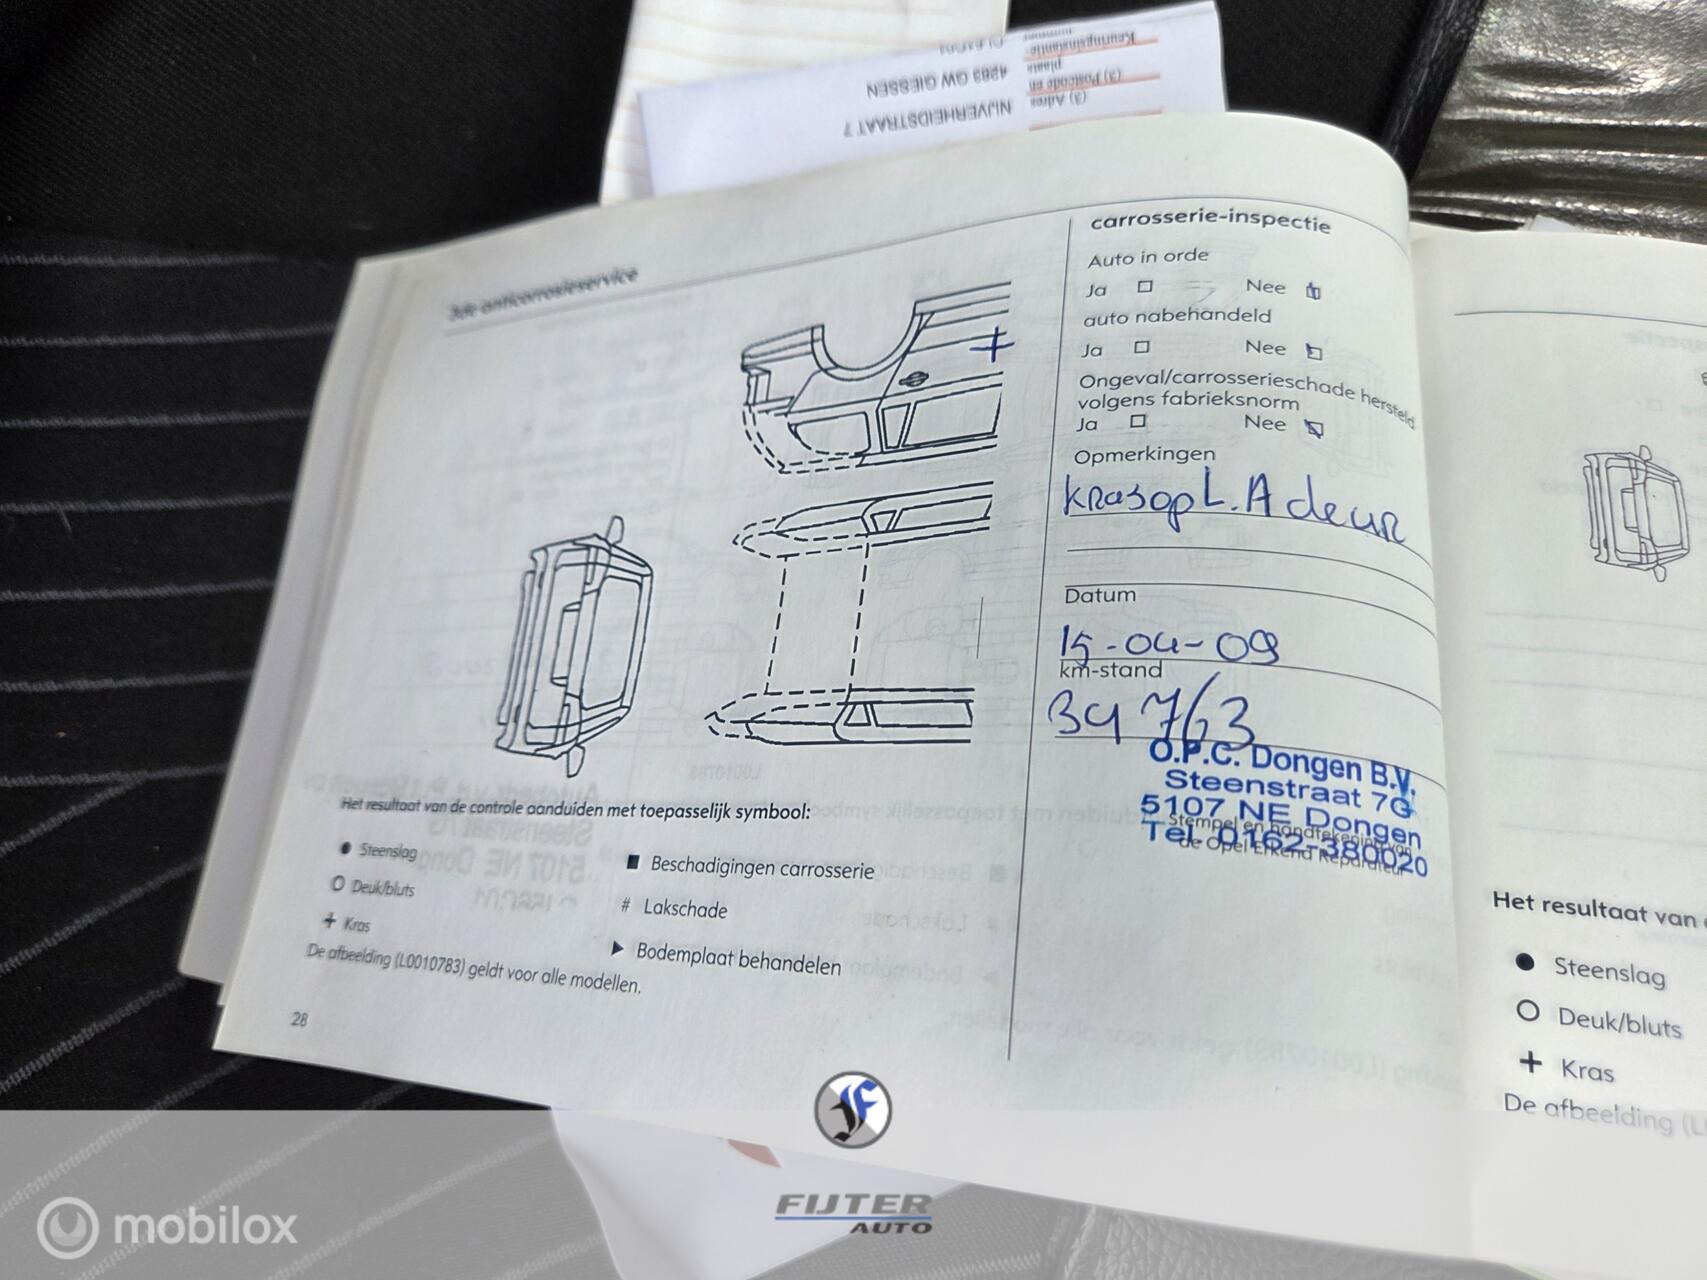 Keuringsinstantie
nummer
plaats
(3) Postcode en
4283 GW GIESSEN
(3) Adres
NIJVERHEIDSTRAAT 7
3de anticorrosieservice
carrosserie-inspectie
Auto in orde
Ja Nee
auto nabehandeld
Ja Nee
Ongeval/carrosserieschade hersteld
volgens fabrieksnorm
Ja Nee
Opmerkingen
Kras op L.A deur
Datum
15-04-09
km-stand
39763
O.P.C. Dongen B.V.
Steenstraat 7G
5107 NE Dongen
Stempel en handtekening van
Tel. 0162-380020
de Opel Erkend Reparateur
Het resultaat van de controle aanduiden met toepasselijk symbool:
● Steenslag
○ Deuk/bluts
+ Kras
■ Beschadigingen carrosserie
# Lakschade
▶ Bodemplaat behandelen
De afbeelding (L0010783) geldt voor alle modellen.
28
Het resultaat van
● Steenslag
○ Deuk/bluts
+ Kras
De afbeelding (L
FIJTER
AUTO
mobilox